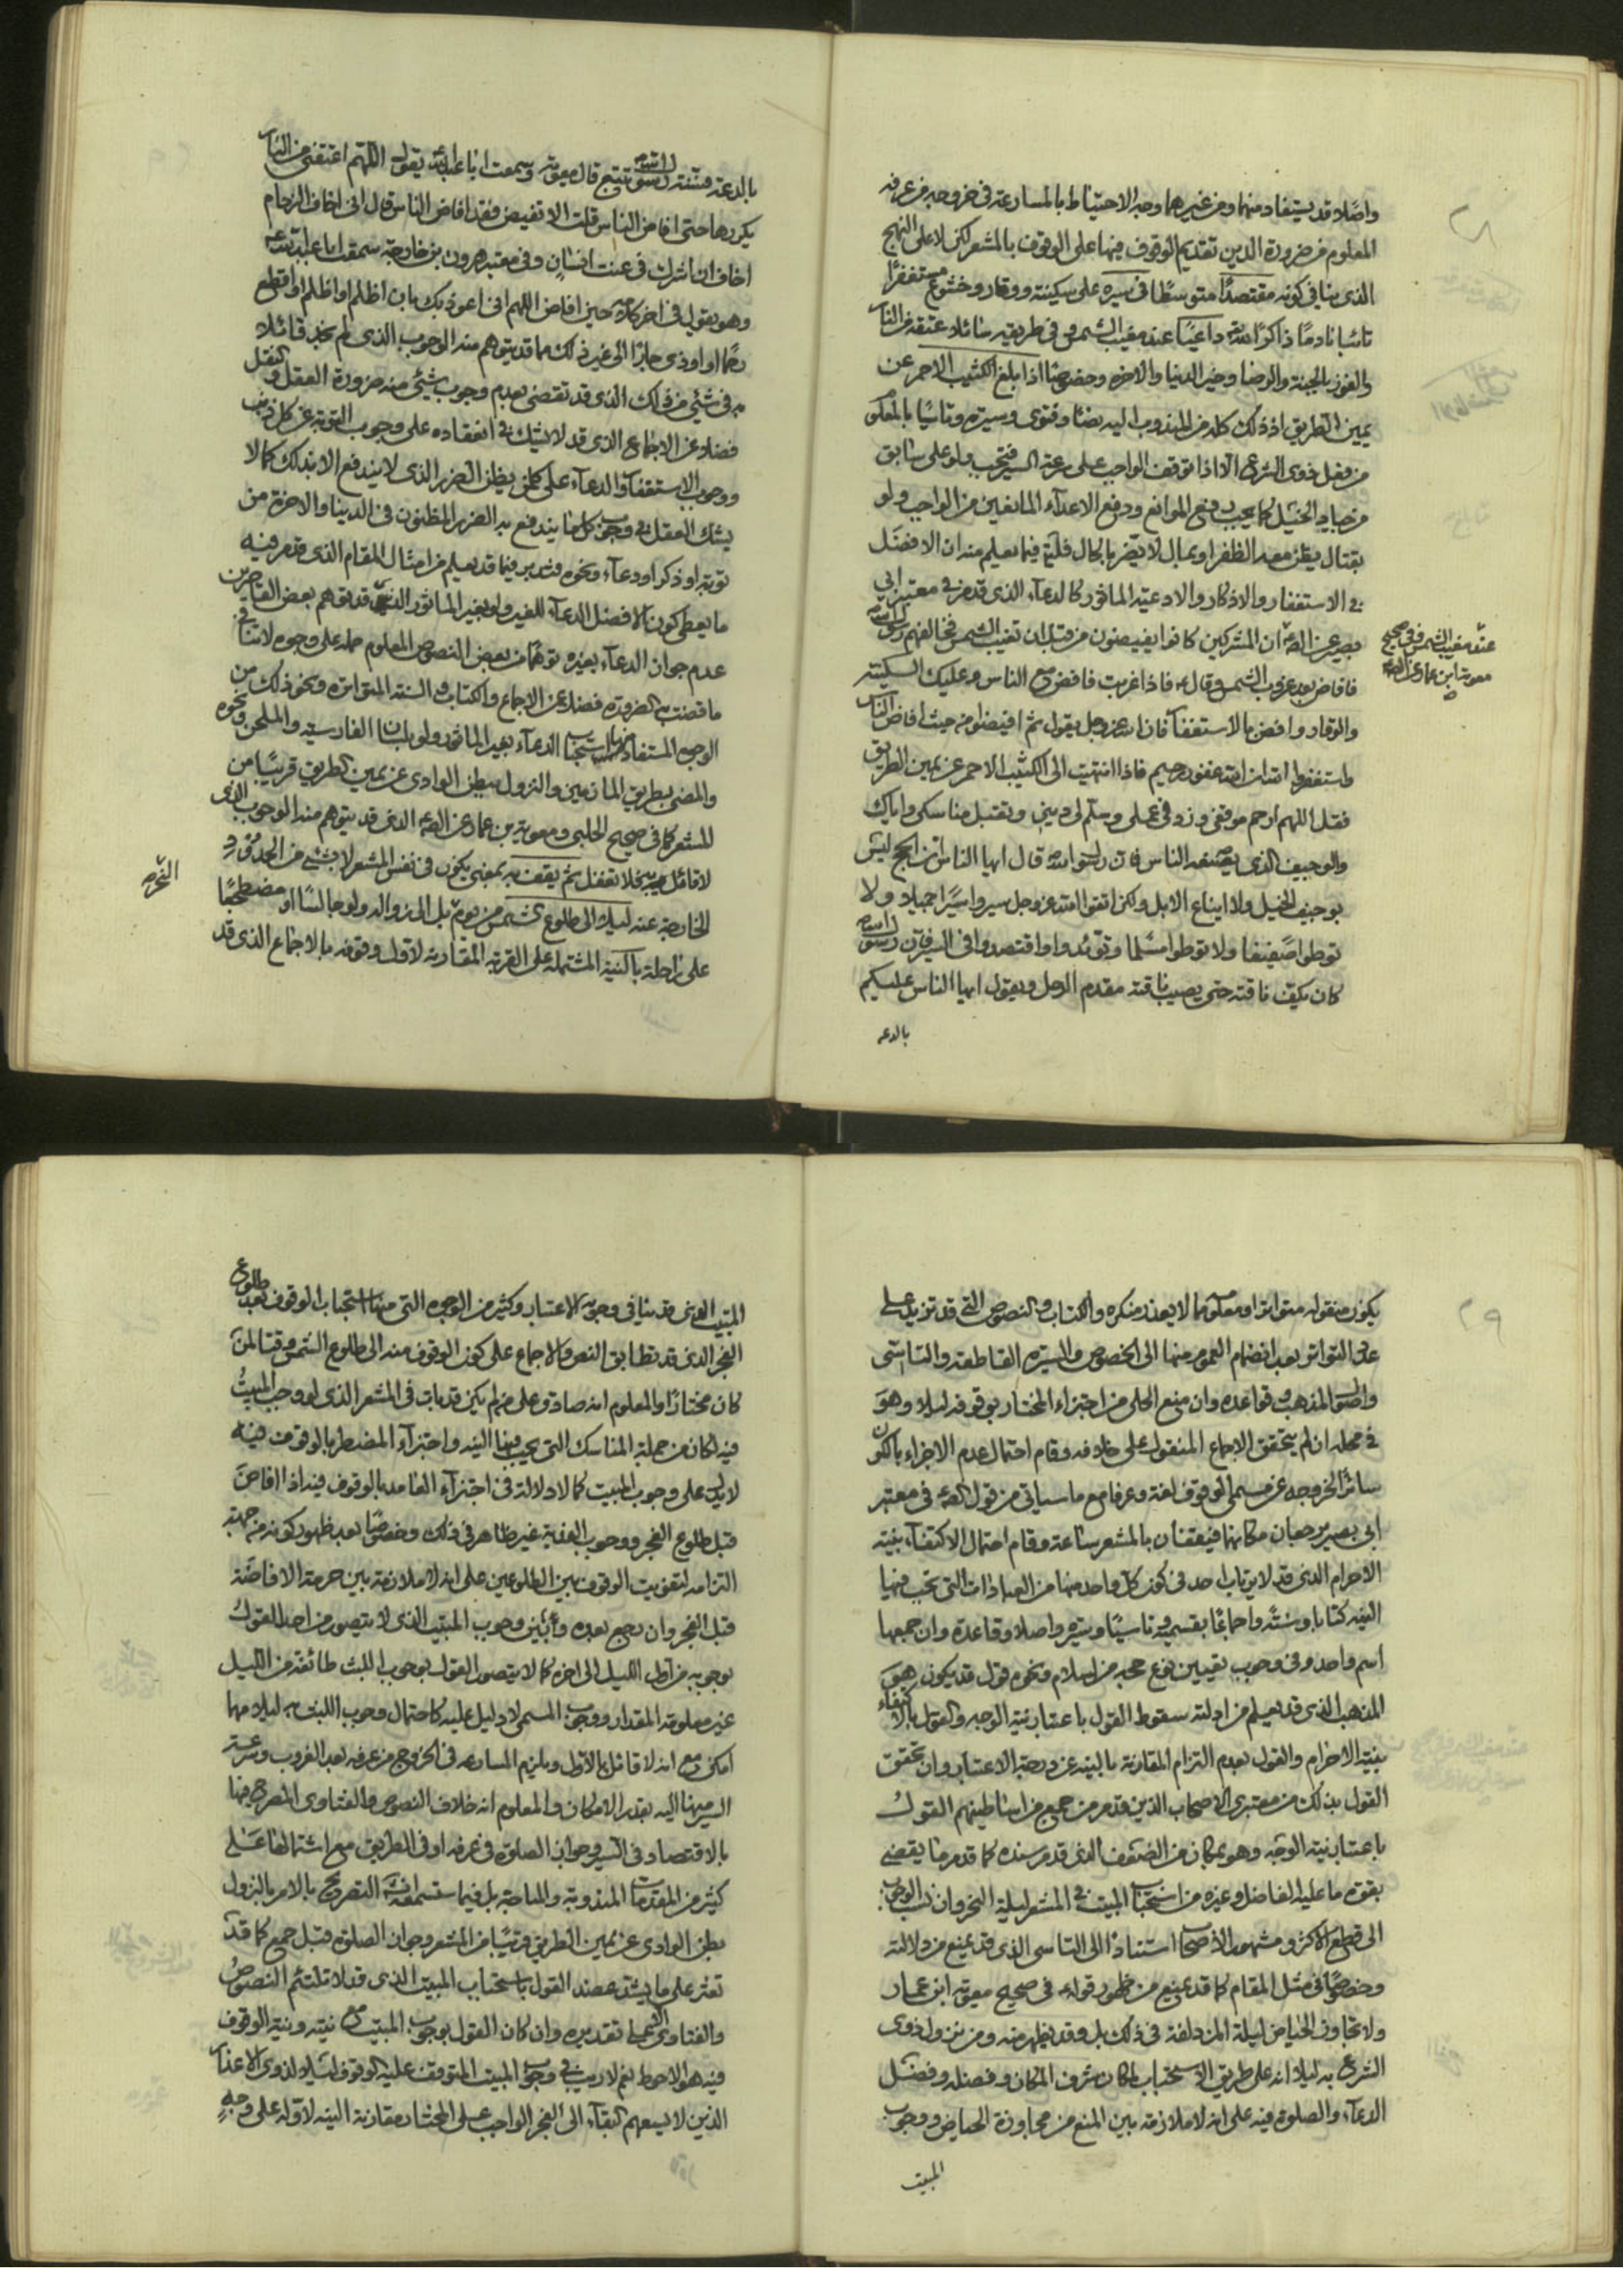 ٢٨
واصلا قد يستفاد منهما ومن غيرهما وجه الاحتياط بالمسارعة في خروجه من عرفه
المعلوم من ضرورة الدين تقديم الوقوف فيها على الوقوف بالمشعر لكن لا على النهج
الذي ينافي كونه مقتصدًا متوسطًا في سيره على سكينة ووقار وخشوع مستغفرًا
تائبا نادمًا ذاكرًا لله داعيًا عند مغيب الشمس وفي طريقه سائلا عتقه من النار
والفوز بالجنة والرضا وخير الدنيا والاخرة وخصوصًا اذا بلغ الكثيب الاحمر عن
يمين الطريق اذ ذلك كله من المندوب اليه نصًا وفتوى وسيرة وتاسيًا بالمعلوم
من فعل ذوى الشرع الا اذا توقف الواجب على سرعة السير فتجب ولو على سابق
من جياد الخيل كما يجب دفع الموانع ودفع الاعداء المانعين من الواجب ولو
بقتال يظن معه الظفر او بمال لا يضر بالحال فليتم فيما يعلم منه ان الافضل
في الاستغفار والاذكار والادعية الماثور كالدعاء الذي قد مر في معتبر ابي
بصير عن الص ان المشركين كانوا يفيضون من قبل ان تغيب الشمس فخالفهم رسول الله
عند مغيب الشمس وفي صحيح
معوية ابن عمار عن الص
فافاض بعد غروب الشمس وقال ع فاذا غربت فافض مع الناس وعليك السكينة
والوقار وافض بالاستغفار فان الله عز وجل يقول ثم افيضوا من حيث افاض الناس
واستغفروا الله ان الله غفور رحيم فاذا انتهيت الى الكثيب الاحمر عن يمين الطريق
فقل اللهم ارحم موقفي وزد في عملي وسلم لي ديني وتقبل مناسكي واياك
والوجيف الذي يصنعه الناس فان رسول الله قال ايها الناس ان الحج ليس
بوجيف الخيل ولا ايضاع الابل ولكن اتقوا الله عز وجل سيروا سيرًا جميلا ولا
توطوا ضعيفا ولا توطوا مسلما وتوئدوا واقتصدوا في السير فان رسول الله
كان يكف ناقته حتى يصيب ناقته مقدم الرحل ويقول ايها الناس عليكم
بالدعه
بالدعة فسنة رسول الله تتبع قال معوية وسمعت ابا عبد الله يقول اللهم اعتقني من النار
يكررها حتى افاض الناس قلت الا تفيض فقد افاض الناس قال اني اخاف الزحام
اخاف ان اشرك في عنت انسان وفي معتبر هرون بن خارجة سمعت ابا عبد الله
وهو يقول في اخر كلامه حين افاض اللهم اني اعوذ بك بان اظلم او اظلم او اقطع
رحمًا او اوذي جارًا الى غير ذلك مما قد يتوهم منه الوجوب الذي لم نجد قائلا
به في شيء من ذلك الذي قد تقضي بعدم وجوب شيئ منه ضرورة العقل والنقل
فضلا عن الاجماع الذي قد لا يشك في انعقاده على وجوب التوبة عن كل ذنب
ووجوب الاستغفار والدعاء على كل من يظن الضرر الذي لا يندفع الا بذلك كما لا
يشك العقل في وجوب كل ما يندفع به الضرر المظنون في الدينا والاخرة من
توبة او ذكر او دعاء ونحوه فتدبر فيما قد يعلم من امثال المقام الذي قد مر فيه
ما يعطي كون الافضل الدعاء للغير ولو بغير الماثور الذي قد يتوهم بعض القاصرين
عدم جواز الدعاء بغيره توهمًا من بعض النصوص المعلوم حمله على وجوه لا تنافي
ما قضت به الضرورة فضلا عن الاجماع والكتاب والسنة المتواترة ونحو ذلك من
الوجوه المستفاد منها استحباب الدعاء بغير الماثور ولو بلسان الفارسية والملحون ونحوه
والمضي بطريق المازمين والنزول ببطن الوادي عن يمين الطريق قريبًا من
المشعر كما في صحيح الحلبي ومعوية بن عمار عن الص الذي قد يتوهم منه الوجوب الذي
لا قائل به فلا تغفل ثم يقف به بمعنى يكون في نفس المشعر لا بشيء من الحدود
الخارجة عنه ليلا الى طلوع شمس من يومه بل الى زواله ولو جالسًا او مضطجعًا
على راحلة بالنية المشتملة على القربة المقارنة لاول وقوفه بالاجماع الذي قد
٢٩
يكون منقوله متواترا ومعلومًا لا يعذر منكره والكتاب والنصوص التي قد تزيد على
عدد التواتر بعد انضمام العموم منها الى الخصوص والسيرة القاطعة والتاسي
واصول المذهب وقواعده وان منع الحلي من اجتزاء المختار بوقوفه ليلا وهو
في محله ان لم يتحقق الاجماع المنقول على خلافه وقام احتمال عدم الاجزاء بالكون
سائرًا لخروجه عن مسمى الوقوف لغة وعرفا مع ما سياتي من قول الص في معتبر
ابي بصير يرجعان مكانهما فيقفان بالمشعر ساعة وقام احتمال الاكتفاء بنية
الاحرام الذي قد لا يرتاب احد في كون كل واحد منها من العبادات التي تجب فيها
النية كتابا وسنة واجماعًا بقسميه وتاسيًا وسيرة واصلا وقاعدة وان جمعها
اسم واحد وفي وجوب تعيين نوع حجه من اسلام ونحوه قول قد يكون هو
المذهب الذي قد يعلم من ادلته سقوط القول باعتبار نية الوجه والقول بالاكتفاء
بنية الاحرام والقول بعدم التزام المقارنة بالنية عن درجة الاعتبار وان تحقق
القول بذلك من معتبري الاصحاب الذين قد مر من جميع من اساطينهم القول
باعتبار نية الوجه وهو بمكان من الضعف الذي قد مر سنده كما قد مر ما يقضي
بقوة ما عليه الفاضل وغيره من استحباب المبيت في المشعر ليلة النحر وان نسب الوجوب
الى قطع الاكثر ومشهور الاصحاب استنادًا الى التاسي الذي قد يمنع من دلالته
وخصوصًا في مثل المقام كما قد يمنع من ظهور قوله ع في صحيح معوية ابن عمار
ولا تجاوز الحياض ليلة المزدلفة في ذلك بل وقد يظهر منه ومن نزول ذوى
الشرع به ليلا انه على طريق الاستحباب لمكان شرف المكان وفضله وفضل
الدعاء والصلوة فيه على انه لا ملازمة بين المنع من مجاوزة الحياض ووجوب
المبيت
المبيت الذي قد ينافي وجوبه الاعتبار وكثير من الوجوه التي منها استحباب الوقوف بعد طلوع
الفجر الذي قد تطابق النص والاجماع على كون الوقوف منه الى طلوع الشمس وقتا لمن
كان مختارًا والمعلوم انه صادق على من لم يكن قد بات في المشعر الذي لو وجب المبيت
فيه لكان من جملة المناسك التي يجب فيها النية واجتزاء المضطر بالوقوف فيه
لا يدل على وجوب المبيت كما لا دلالة في اجتزاء العامد بالوقوف فيه اذا افاض
قبل طلوع الفجر ووجوب الفدية غير ظاهر في ذلك وخصوصًا بعد ظهور كونه من جهة
التزامه لتفويت الوقوف بين الطلوعين على انه لا ملازمة بين حرمة الافاضة
قبل الفجر وان رجع بعده وبين وجوب المبيت الذي لا يتصور من احد القول
بوجوبه من اول الليل الى اخره كما لا يتصور القول بوجوب اللبث طائفة من الليل
غير معلومة المقدار ووجوب المسمى لا دليل عليه كاحتمال وجوب اللبث به ليلا مهما
امكن مع انه لا قائل بالاول ويلزم المسارعه في الخروج من عرفه بعد الغروب وسرعة
السير منها اليه بقدر الامكان والمعلوم انه خلاف النصوص والفتاوى المصرح فيها
بالاقتصاد في السير وجواز الصلوة في عرفه او في الطريق مع اشتمالها على
كثير من المقدمات المندوبة والمباحة بل فيما ستسمعه التصريح بالامر بالنزول
ببطن الوادي عن يمين الطريق قريبًا من المشعر وجواز الصلوة قبل جمع كما قد
تعثر على ما يشد عضد القول باستحباب المبيت الذي قد لا تلتئم النصوص
والفتاوى الا على تقديره وان كان القول بوجوب المبيت مع نيته ونية الوقوف
فيه هو الاحوط نعم لا ريب في وجوب المبيت المتوقف عليه الوقوف ليلا لذوى الاعذار
الذين لا يسعهم البقاء الى الفجر الواجب على المختار مقارنة النية لاوله على وجه